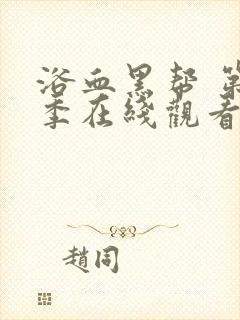 浴血黑帮 第
季在綫觀看
趙同